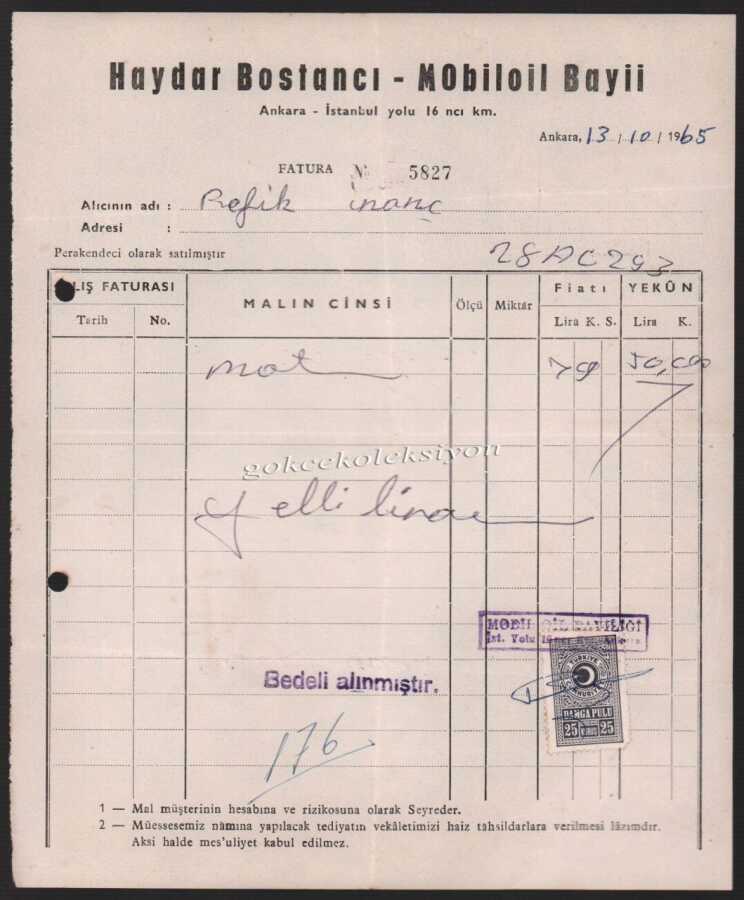 Haydar Bostancı - MObiloil Bayii
Ankara - İstanbul yolu 16 ncı km.
Ankara, 13 / 10 / 1965
FATURA № 5827
Alıcının adı : Refik inanç
Adresi :
Perakendeci olarak satılmıştır
28 AC 293
LIŞ FATURASI MALIN CİNSİ Ölçü Miktar Fiatı YEKÛN
Tarih No. Lira K. S. Lira K.
mot 79 50,00
gokcekoleksiyon
elli lira
MOBİL OİL BAYİLİĞİ
İst. Yolu 16 ncı Km. Ankara
Bedeli alınmıştır.
TÜRKİYE CUMHURİYETİ
DAMGA PULU
25 KURUŞ 25
176
1 — Mal müşterinin hesabına ve rizikosuna olarak Seyreder.
2 — Müessesemiz nâmına yapılacak tediyatın vekâletimizi haiz tahsildarlara verilmesi lâzımdır.
Aksi halde mes'uliyet kabul edilmez.